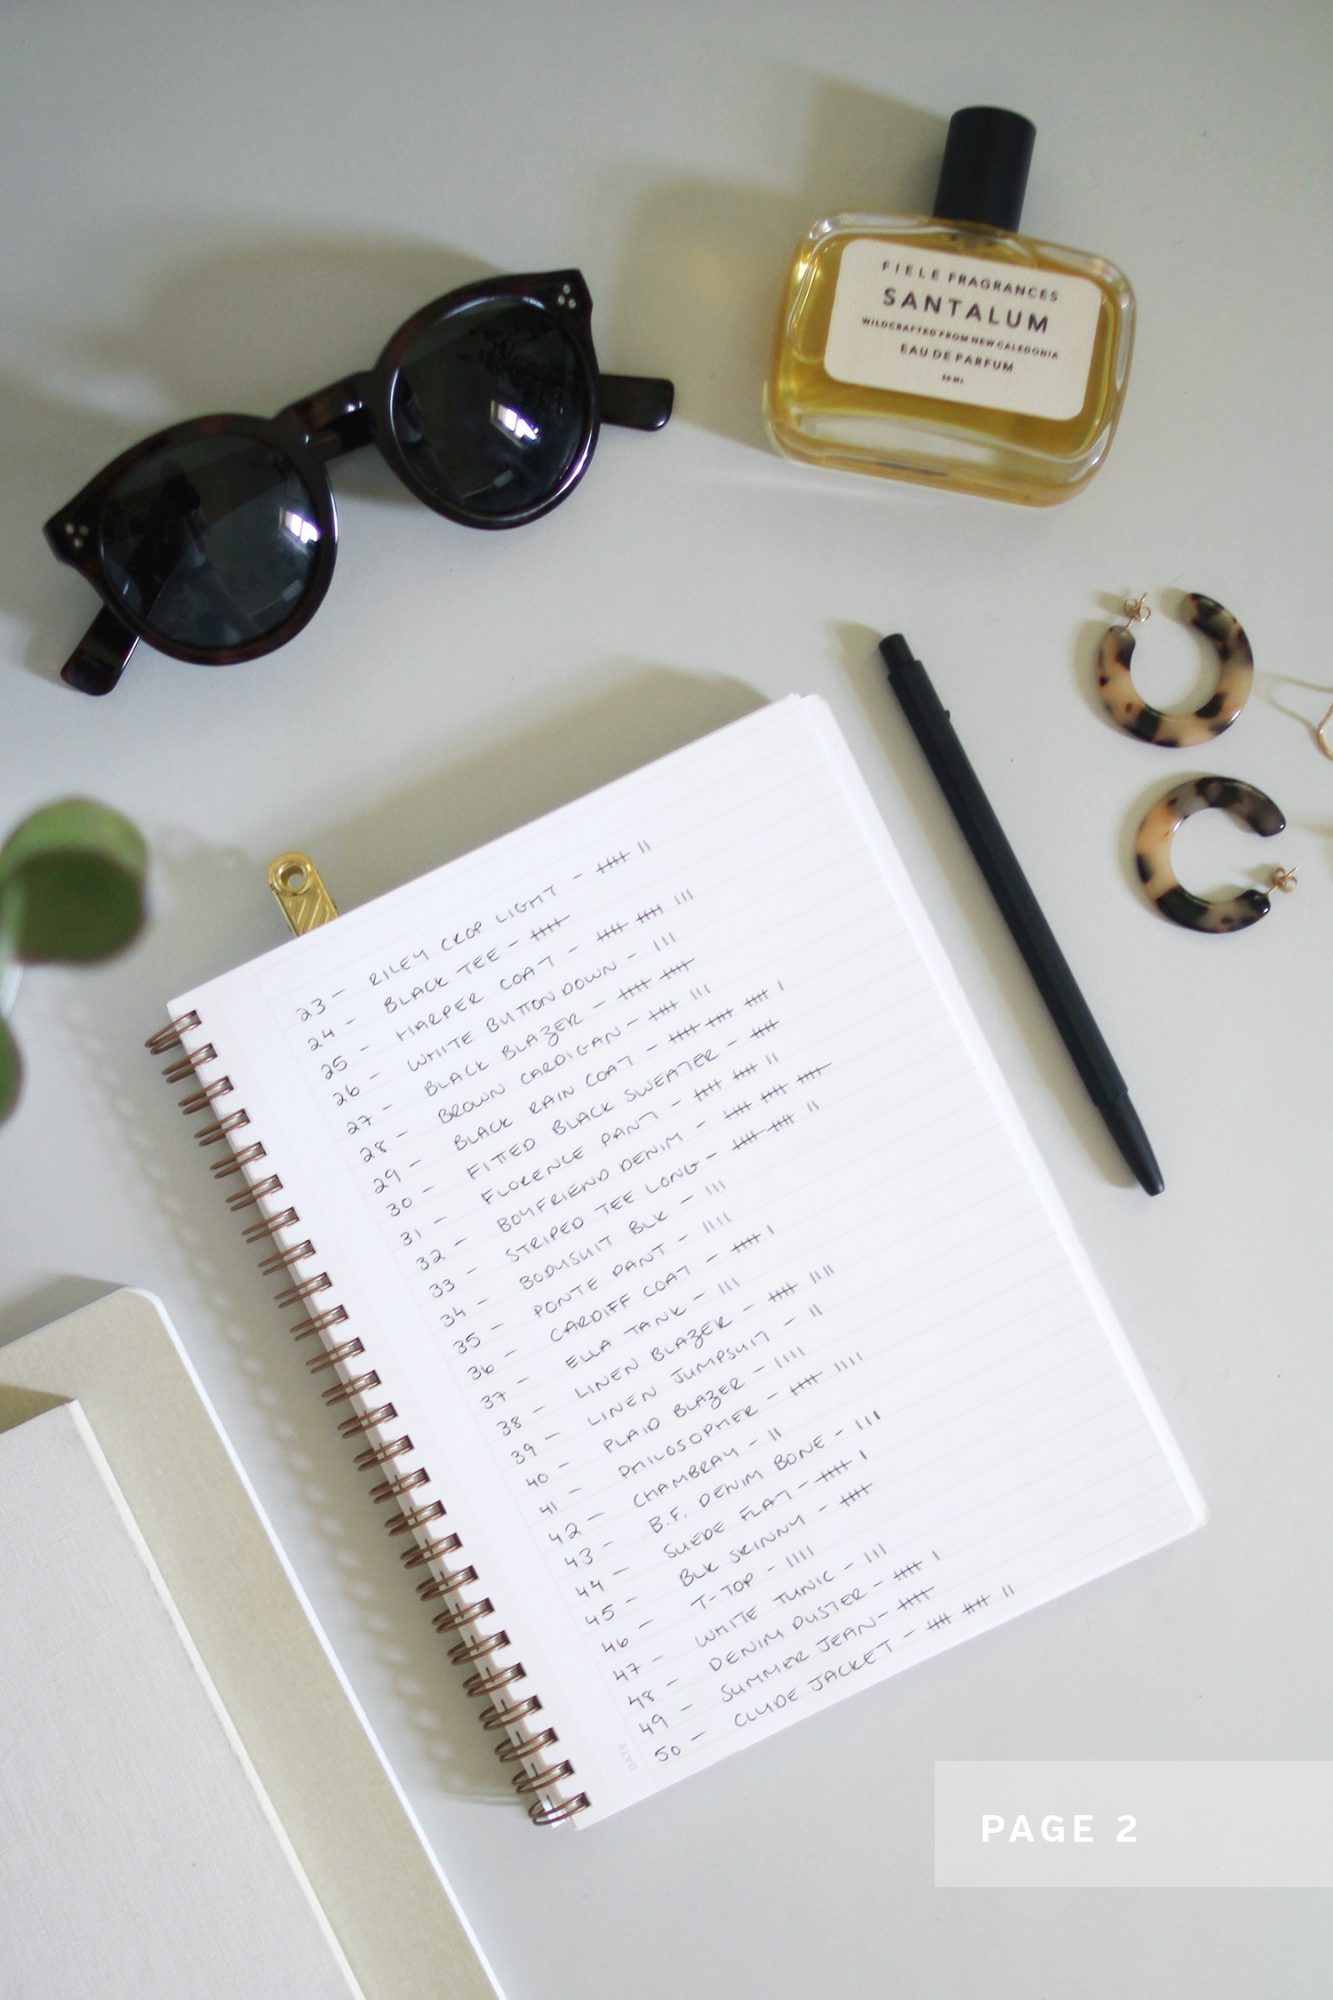 FIELE FRAGRANCES
SANTALUM
WILDCRAFTED FROM NEW CALEDONIA
EAU DE PARFUM
50 ML
23 - RILEY CROP LIGHT - 𝍸 ||
24 - BLACK TEE - 𝍸
25 - HARPER COAT - 𝍸 𝍸 |||
26 - WHITE BUTTON DOWN - |||
27 - BLACK BLAZER - 𝍸 𝍸
28 - BROWN CARDIGAN - 𝍸 |||
29 - BLACK RAIN COAT - 𝍸 𝍸 𝍸 |
30 - FITTED BLACK SWEATER - 𝍸
31 - FLORENCE PANT - 𝍸 𝍸 ||
32 - BOYFRIEND DENIM - 𝍸 𝍸 𝍸
33 - STRIPED TEE LONG - 𝍸 𝍸 ||
34 - BODYSUIT BLK - |||
35 - PONTE PANT - ||||
36 - CARDIFF COAT - 𝍸 |
37 - ELLA TANK - |||
38 - LINEN BLAZER - 𝍸 ||||
39 - LINEN JUMPSUIT - ||
40 - PLAID BLAZER - ||||
41 - PHILOSOPHER - 𝍸 ||||
42 - CHAMBRAY - ||
43 - B.F. DENIM BONE - |||
44 - SUEDE FLAT - 𝍸 |
45 - BLK SKINNY - 𝍸
46 - T-TOP - ||||
47 - WHITE TUNIC - |||
48 - DENIM DUSTER - 𝍸 |
49 - SUMMER JEAN - 𝍸
50 - CLYDE JACKET - 𝍸 𝍸 ||
DATE
PAGE 2